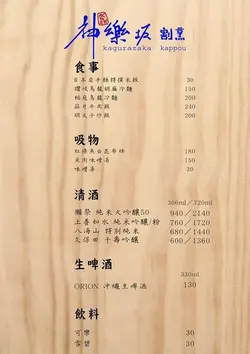 神樂坂 割烹
kagurazaka kappou
食事
日本岩手縣得獎米飯 30
讚岐烏龍胡麻冷麵 150
稻庭烏龍冷麵 200
親子丼飯 200
明太子炒飯 240
吸物
味噌湯 30
清酒
300ml / 720ml
獺祭 純米大吟釀50 940/2140
上善如水 純米吟釀/粉 760/1720
八海山 特別純米 680/1440
久保田 千壽吟釀 600/1360
生啤酒
330ml
ORION 沖繩生啤酒 130
飲料
可樂 30
雪碧 30